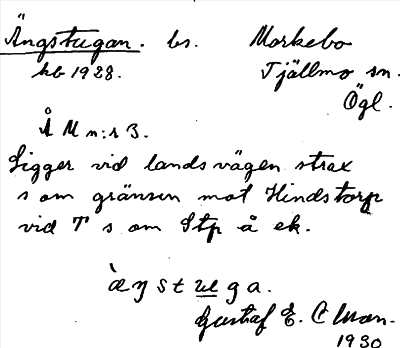 Ängstugan. bs. Morkebo
kb 1928. Tjällmo sn.
Ögl.
Å M n:r 3.
Ligger vid landsvägen strax
s om gränsen mot Hindstorp
vid T s om Stp å ek.
Gustaf E. C
1930